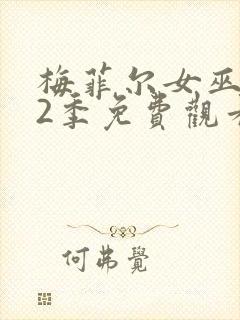 梅菲尔女巫
2季免費觀看
何弗覺